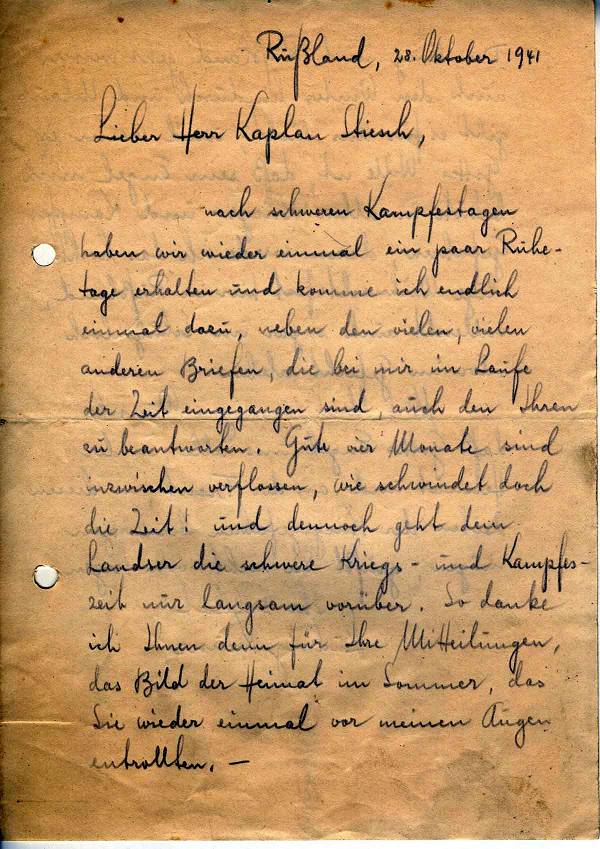 Rußland, 28. Oktober 1941
Lieber Herr Kaplan Stiesch,
nach schweren Kampfestagen
haben wir wieder einmal ein paar Ruhe-
tage erhalten und komme ich endlich
einmal dazu, neben den vielen, vielen
anderen Briefen, die bei mir im Laufe
der Zeit eingegangen sind, auch den Ihren
zu beantworten. Gute vier Monate sind
inzwischen verflossen, wie schwindet doch
die Zeit! und dennoch geht dem
Landser die schwere Kriegs- und Kampfes-
zeit nur langsam vorüber. So danke
ich Ihnen denn für Ihre Mitteilungen,
das Bild der Heimat im Sommer, das
Sie wieder einmal vor meinen Augen
entrollten. —